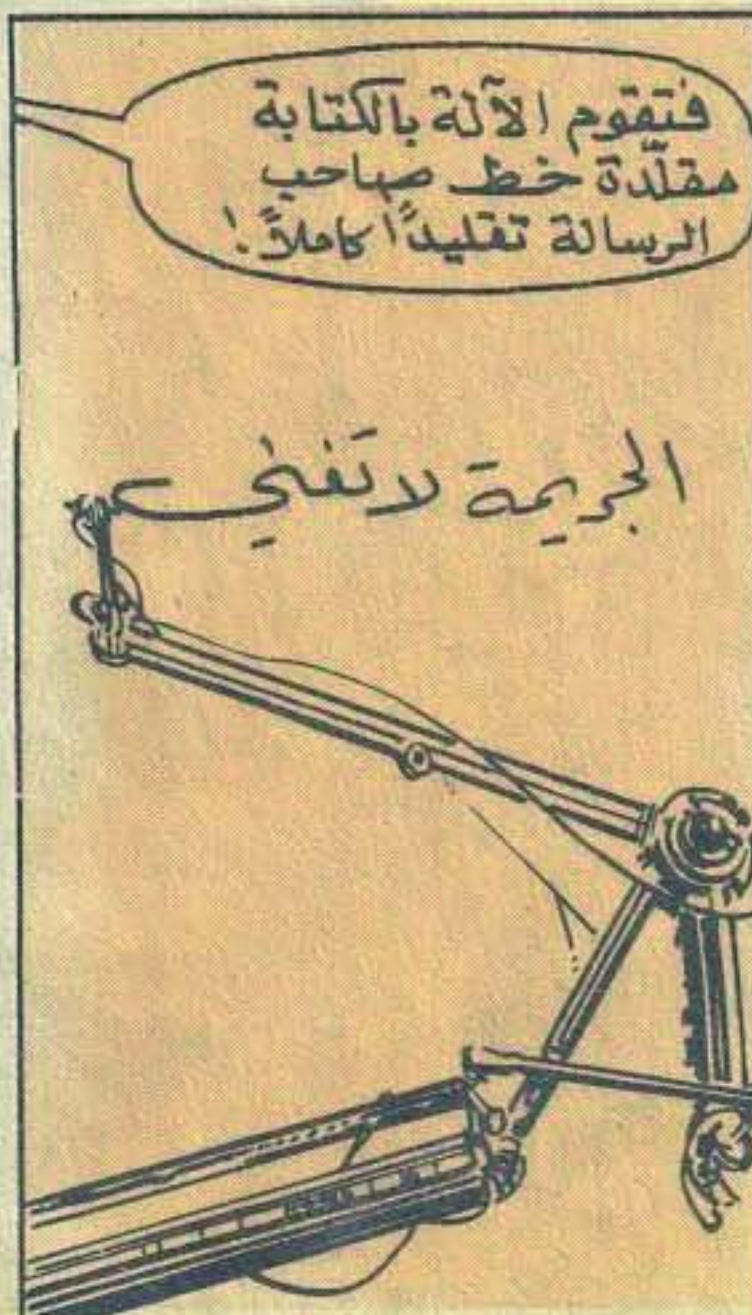 فتقوم الآلة بالكتابة
مقلّدة خط صاحب
الرسالة تقليدًا كاملاً!
الجريمة لا تفني